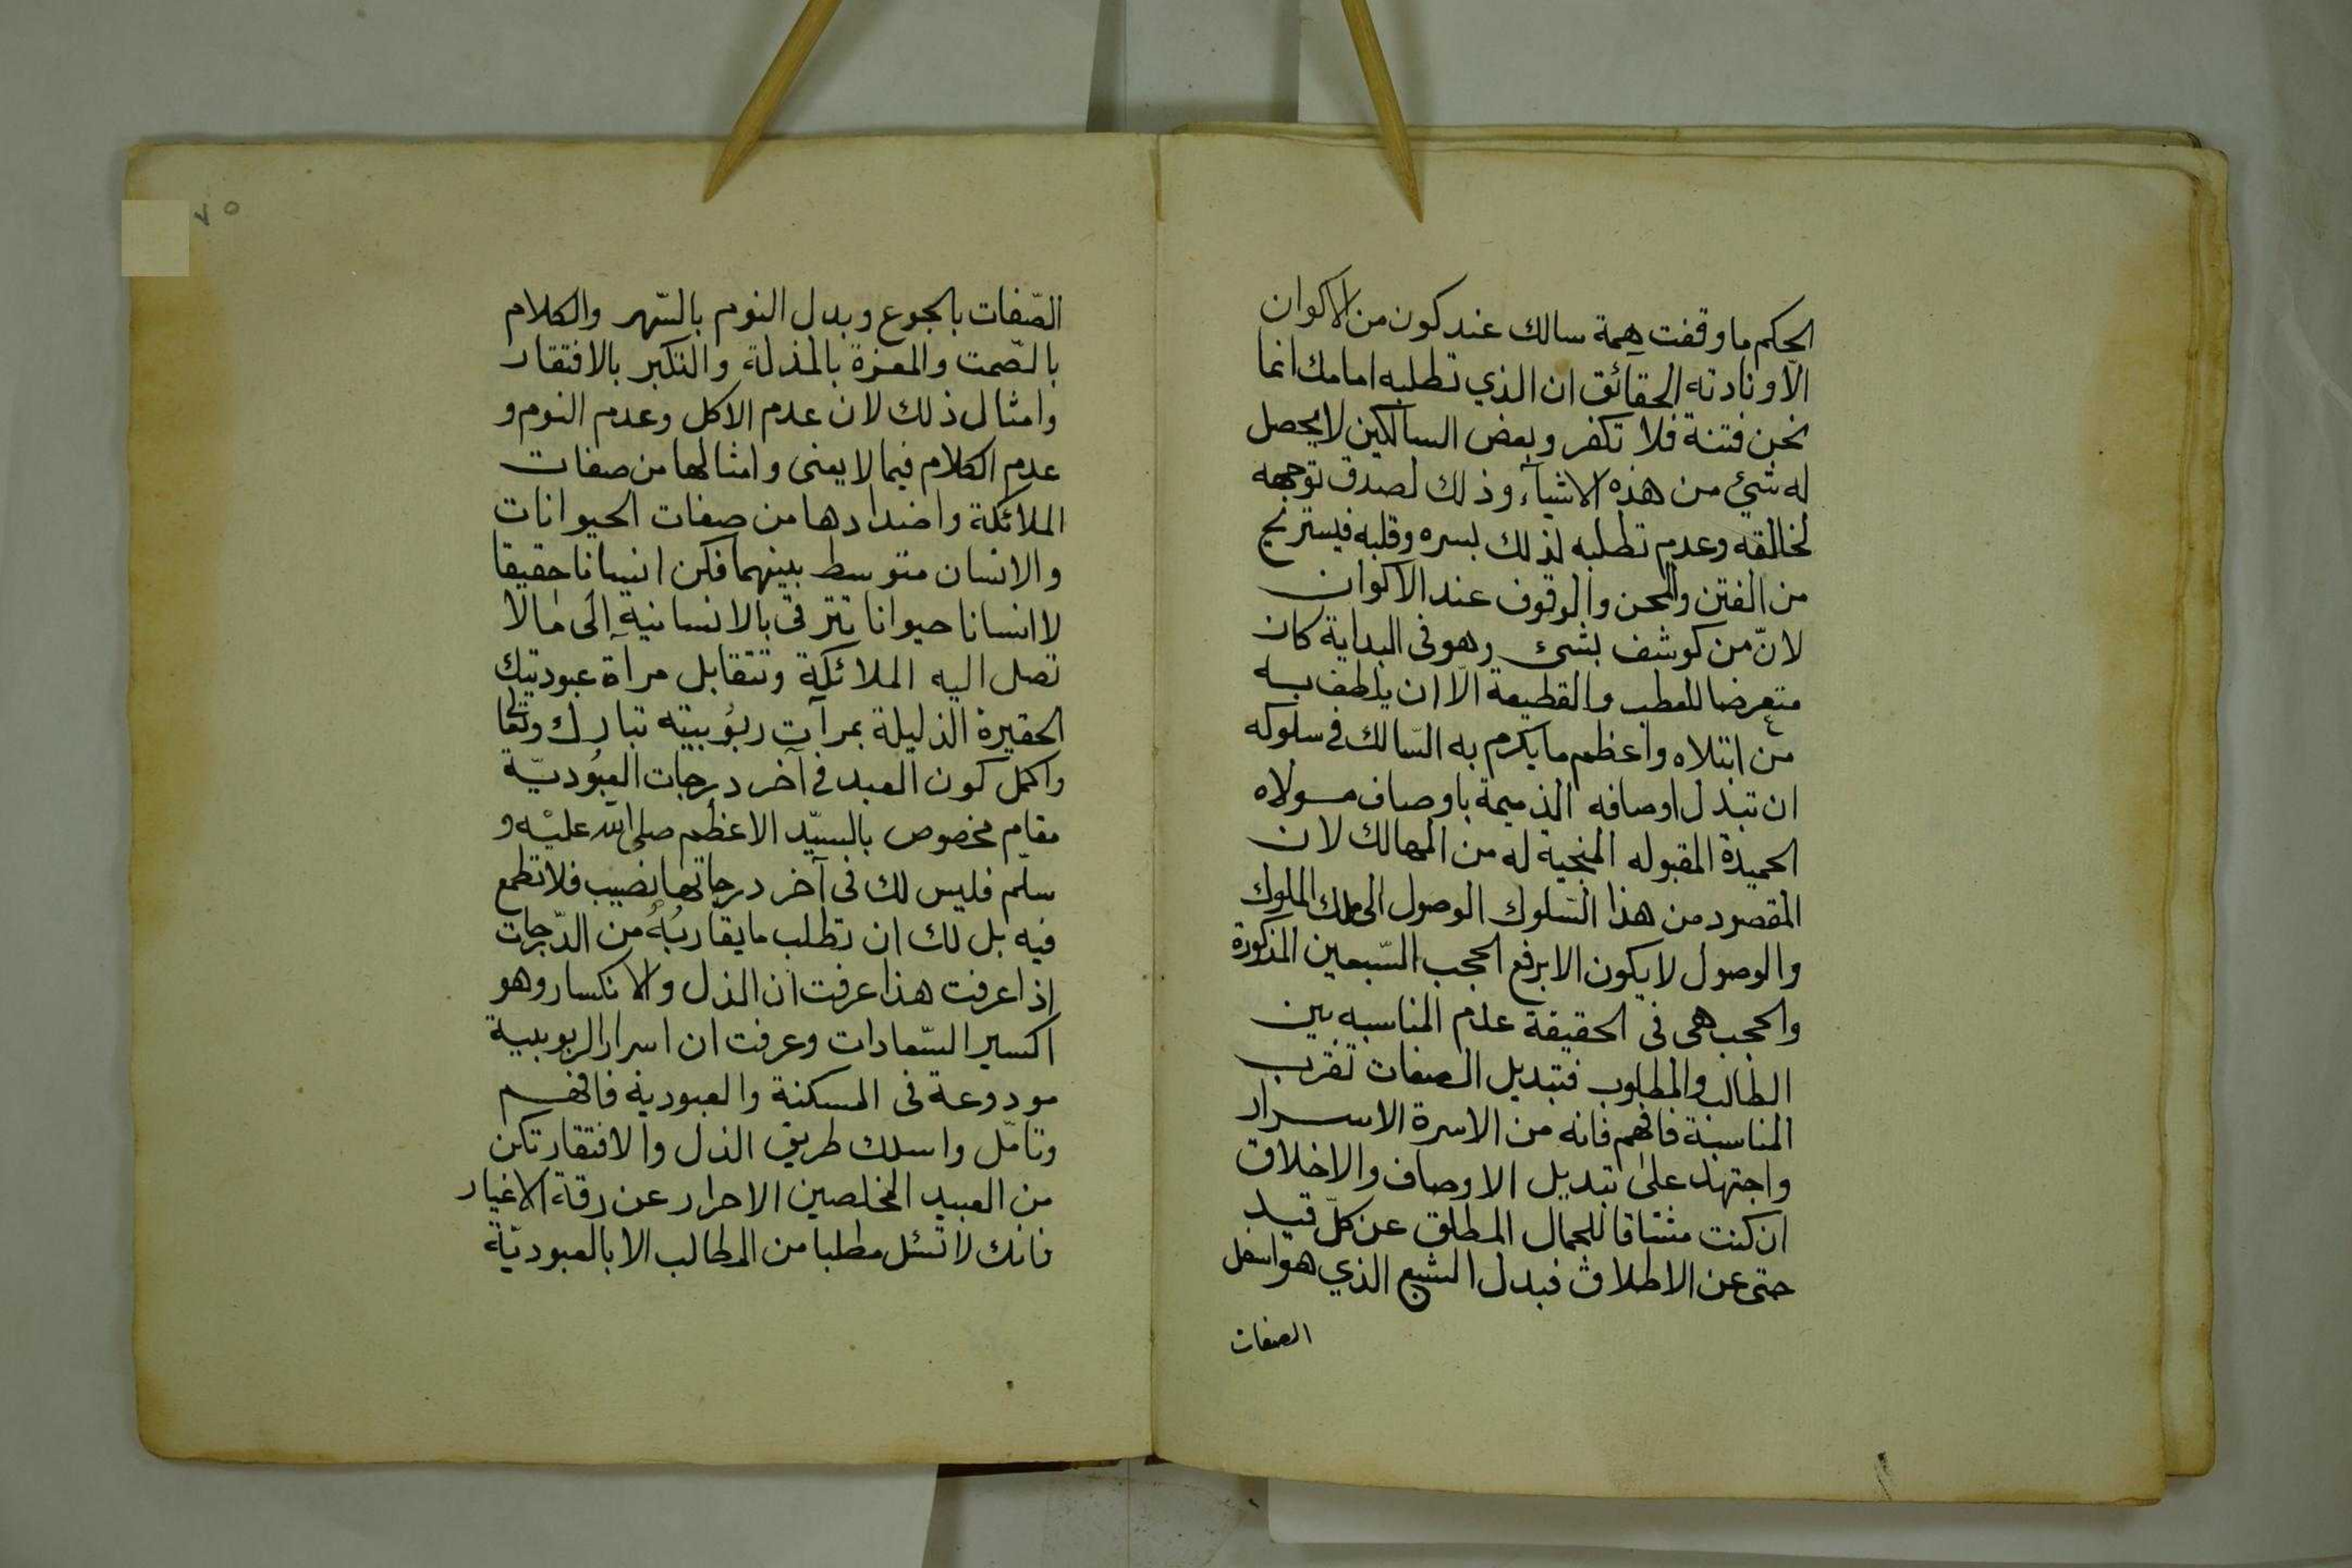 الحكم ما وقفت همة سالك عند كون من الاكوان
الا ونادته الحقآئق ان الذي تطلبه امامك انما
نحن فتنة فلا تكفر وبعض السالكين لا يحصل
له شئ من هذه الاشيآء وذلك لصدق توجهه
لخالقه وعدم تطلبه لذلك بسره وقلبه فيستريح
من الفتن والمحن والوقوف عند الاكوان
لانّ من كوشف بشئ وهو فى البداية كان
متعرضا للعطب والقطيعة الّا ان يلطف به
من ابتلاه واعظم ما يكرم به السّالك فى سلوكه
ان تبدل اوصافه الذميمة باوصاف مولاه
الحميدة المقبوله المنجية له من المهالك لان
المقصود من هذا السّلوك الوصول الى ملك الملوك
والوصول لا يكون الا برفع الحجب السّبعين المذكورة
والحجب هى فى الحقيقة عدم المناسبه بين
الطالب والمطلوب فتبديل الصفات تقرب
المناسبة فافهم فانه من الاسرة الاسرار
واجتهد على تبديل الاوصاف والاخلاق
ان كنت مشتاقا للجمال المطلق عن كلّ قيد
حتى عن الاطلاق فبدل الشبع الذي هو اسفل
الصفات
٧٥
الصّفات بالجوع وبدل النوم بالسّهر والكلام
بالصّمت والمعزة بالمذلة والتكبر بالافتقار
وامثال ذلك لان عدم الاكل وعدم النوم و
عدم الكلام فيما لا يعنى وامثالها من صفات
الملائكة واضدادها من صفات الحيوانات
والانسان متوسط بينهما فكن انسانا حقيقا
لا انسانا حيوانا تترقى بالانسانية الى ما لا
تصل اليه الملائكة وتتقابل مرآة عبوديتك
الحقيرة الذليلة بمرآت ربُوبيته تبارك وتعالى
واكمل كون العبد فى آخر درجات العبُوديّة
مقام مخصوص بالسيّد الاعظم صلى الله عليْه و
سلّم فليس لك فى آخر درجاتها نصيب فلا تطمع
فيه بل لك ان تطلب ما يقاربُهُ من الدّرجات
اذا عرفت هذا عرفت ان الذل والانكسار وهو
اكسير السّعادات وعرفت ان اسرار الربوبية
مودوعة فى المسكنة والعبودية فافهم
وتامّل واسلك طريق الذل والافتقار تكن
من العبيد المخلصين الاحرار عن رقة الاغيار
فانك لا تسئل مطلبا من المطالب الا بالعبوديّة